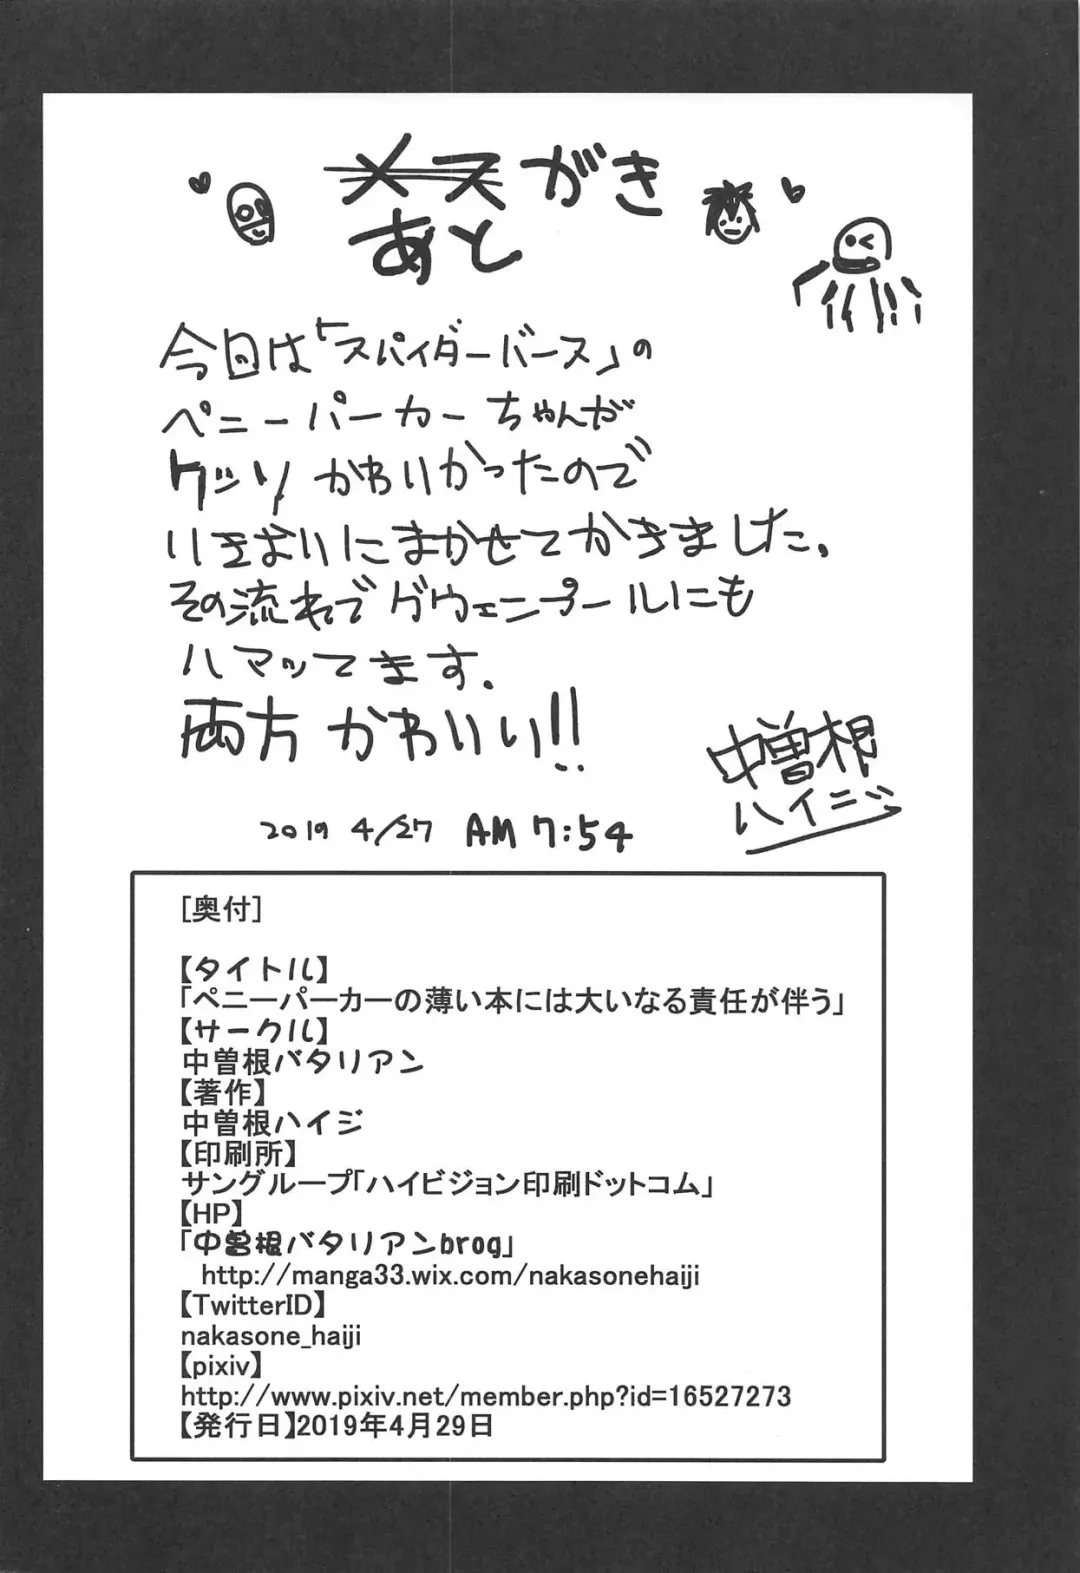 メスがき
あと
今日は「スパイダーバース」の
ペニーパーカーちゃんが
クッソかわいかったので
いきおいにまかせてかきました。
その流れでグウェンプールにも
ハマッてます。
両方かわいい!!
中曽根
ハイジ
2019 4/27 AM 7:54
[奥付]
【タイトル】
「ペニーパーカーの薄い本には大いなる責任が伴う」
【サークル】
中曽根バタリアン
【著作】
中曽根ハイジ
【印刷所】
サングループ「ハイビジョン印刷ドットコム」
【HP】
「中曽根バタリアンbrog」
http://manga33.wix.com/nakasonehaiji
【TwitterID】
nakasone_haiji
【pixiv】
http://www.pixiv.net/member.php?id=16527273
【発行日】2019年4月29日